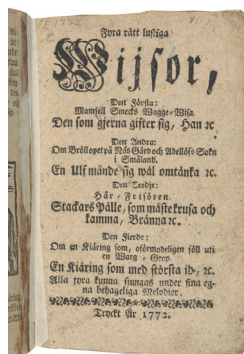 Fyra rätt lustiga
Wijsor,
Den Första:
Mamsell Smecks Wagge-Wisa.
Den som gjerna gifter sig, Han ꝛc
Den Andra:
Om Bröllopet på Näs Gård och Adellöfs Sokn
i Småland.
En Ulf månde sig wäl omtänka ꝛc.
Den Tredje:
Här-Frisören.
Stackars Pålle, som måste krusa och
kamma, Bränna ꝛc.
Den Fierde:
Om en Kiäring som, oförmodeligen föll uti
en Warg-Grop.
En Kiäring som med största id, ꝛc.
Alla fyra kunna siungas under sina eg-
na behageliga Melodier.
Tryckt År 1772.